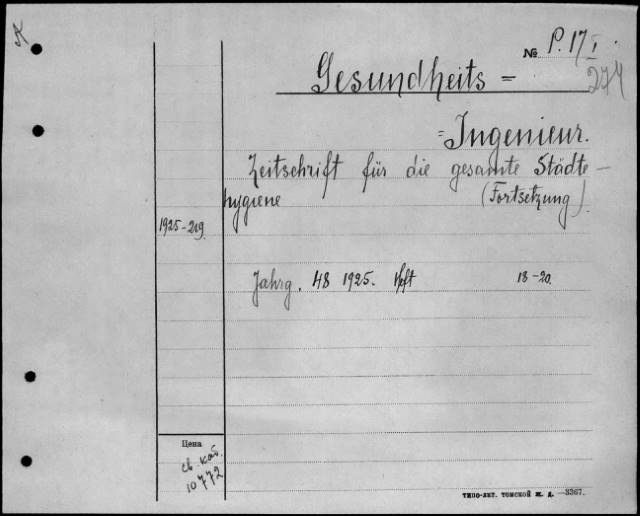 № P. 17 I
274
Gesundheits =
= Ingenieur.
Zeitschrift für die gesamte Städte-
hygiene (Fortsetzung)
1925-209
Jahrg. 48 1925. Heft 18-20.
Цена
св. каб.
10772
ТИПО-ЛИТ. ТОМСКОЙ Ж. Д. —3367.